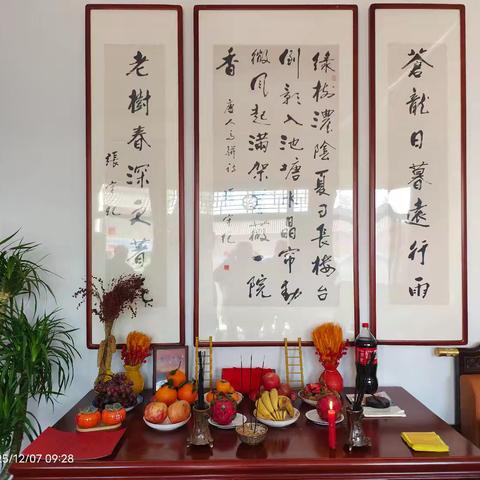 蒼龍日暮還行雨
綠樹濃陰夏日長樓台
倒影入池塘水晶帘動
微風起滿架薔薇一院
香
唐人高駢詩
老樹春深更著花
12/07 09:28